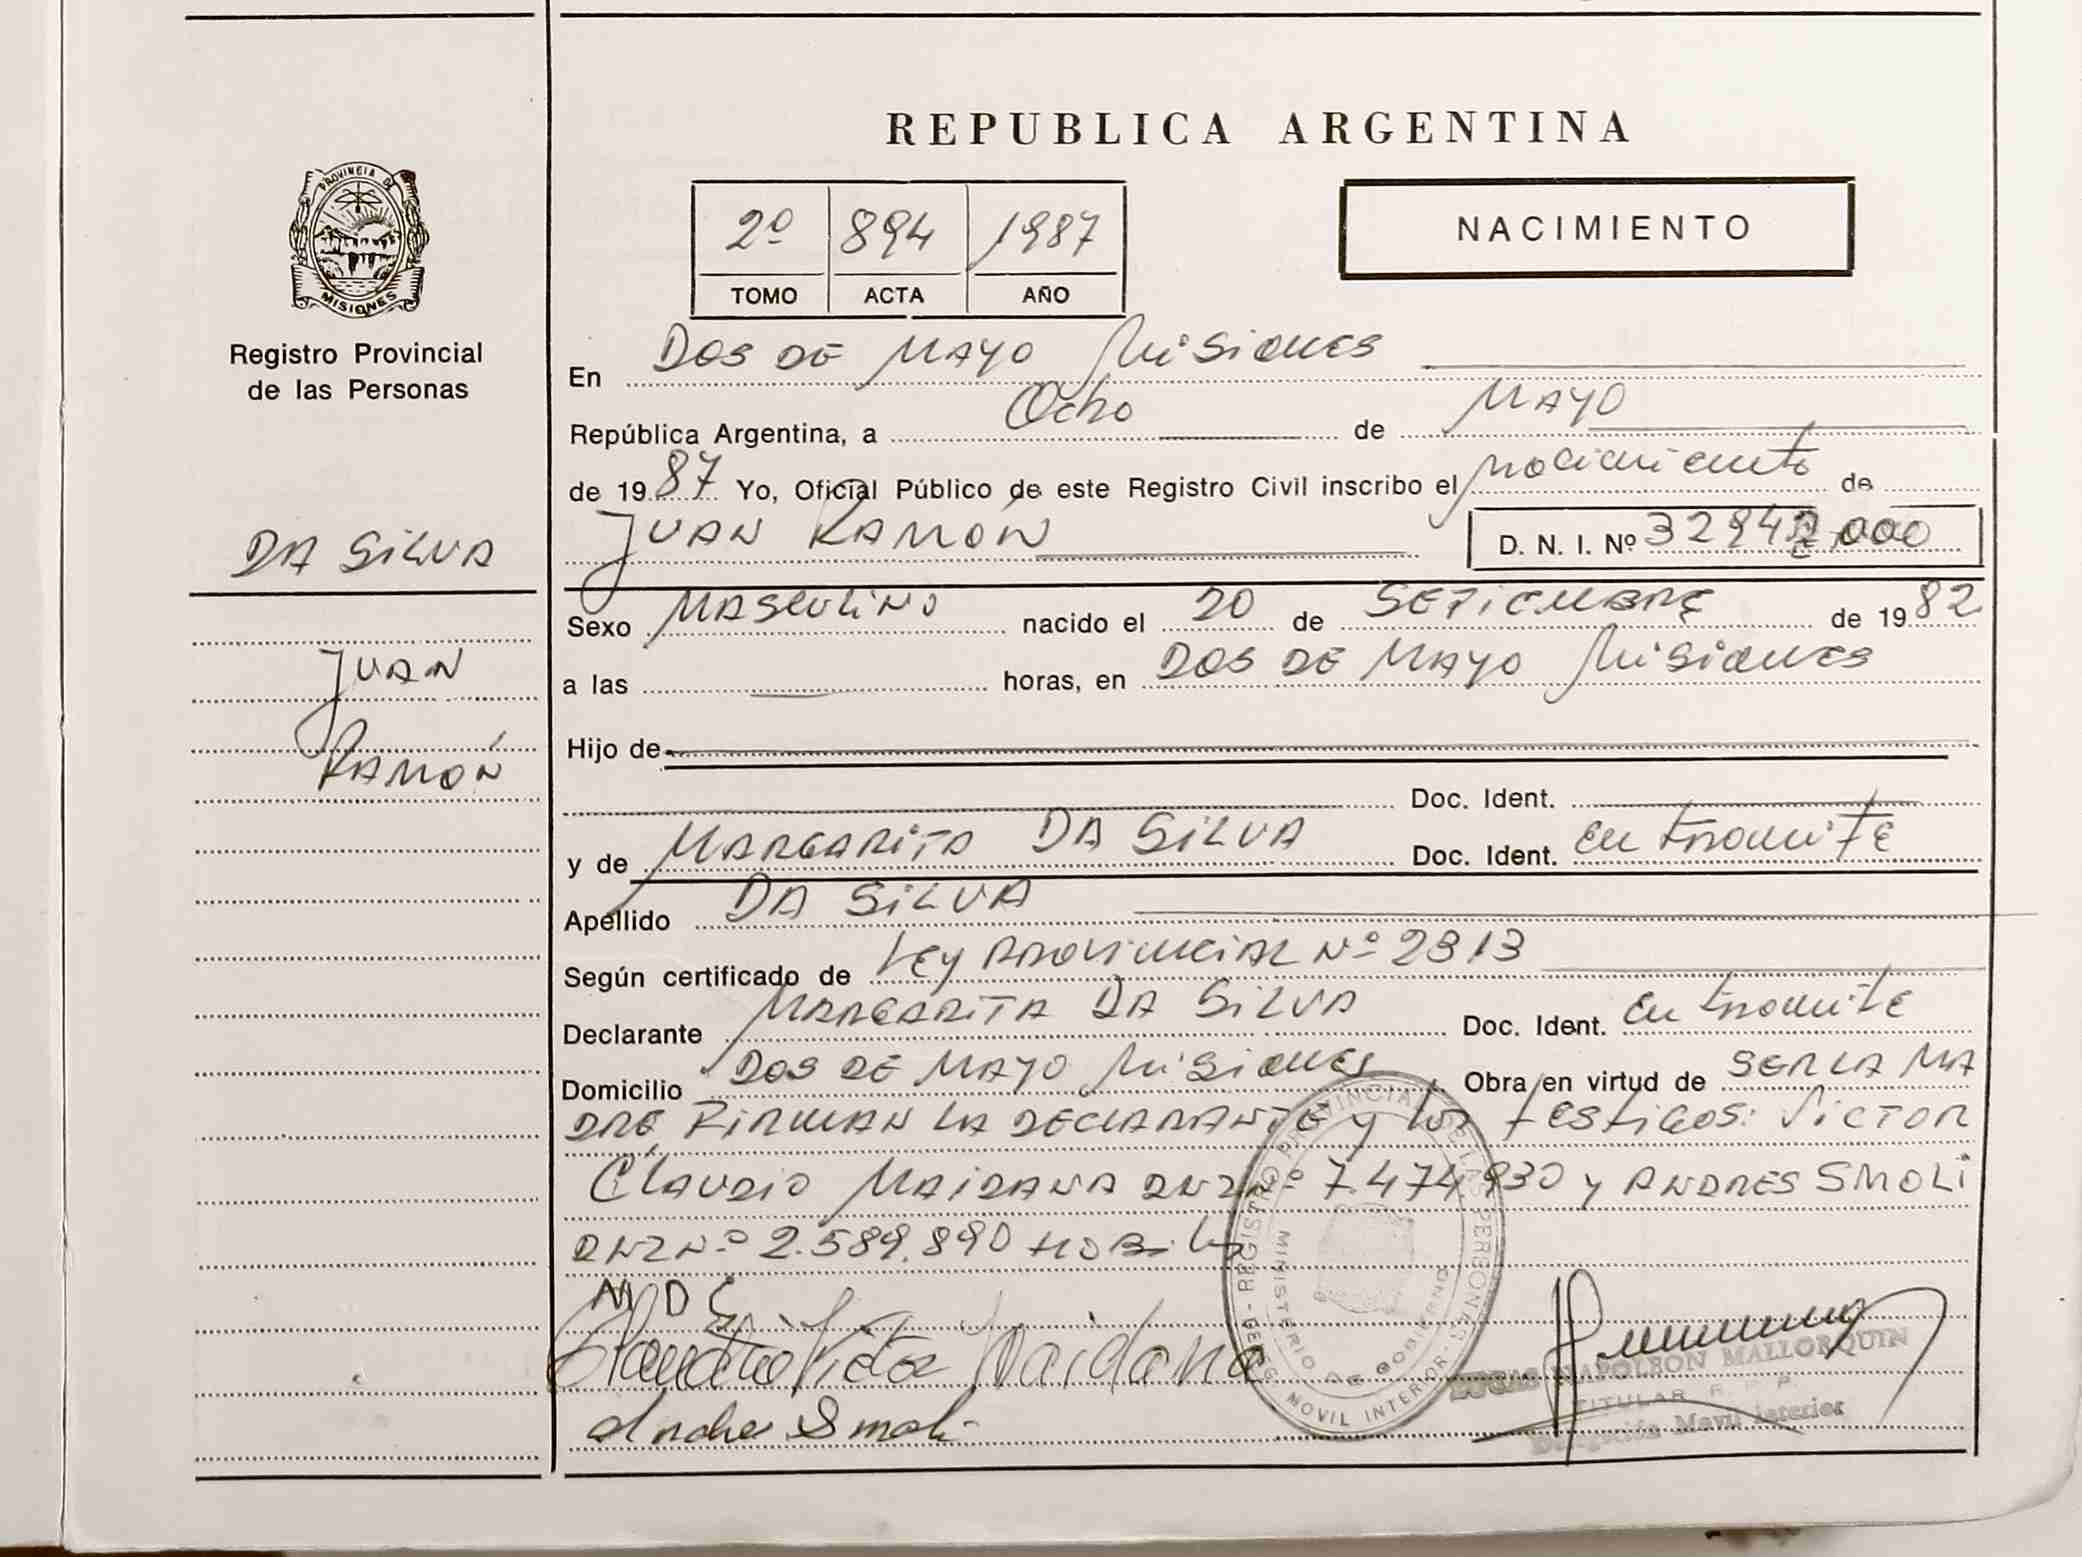 REPUBLICA ARGENTINA
PROVINCIA DE
MISIONES
Registro Provincial
de las Personas
2º 894 1987
TOMO ACTA AÑO
NACIMIENTO
En DOS DE MAYO Misiones
República Argentina, a Ocho de MAYO
de 1987 Yo, Oficial Público de este Registro Civil inscribo el nacimiento de
DA SILVA
JUAN RAMÓN
JUAN RAMÓN D. N. I. Nº
Sexo MASCULINO nacido el 20 de SETIEMBRE de 1982
a las horas, en DOS DE MAYO Misiones
Hijo de
Doc. Ident.
y de MARGARITA DA SILVA Doc. Ident. en tramite
Apellido DA SILVA
Según certificado de Ley PROVINCIAL Nº 2313
Declarante MARGARITA DA SILVA Doc. Ident. en tramite
Domicilio DOS DE MAYO Misiones Obra en virtud de SER LA MA
DRE, FIRMAN LA DECLARANTE y los testigos: VICTOR
CLAUDIO MAIDANA DNI Nº 7.474.930 y ANDRES SMOLI
DNI Nº 2.589.890
M D S
Claudio Victor Maidana
Andres Smoli
REGISTRO PROVINCIAL DE LAS PERSONAS
MINISTERIO DE GOBIERNO
DELEG. MOVIL INTERIOR
LUCAS NAPOLEON MALLORQUIN
TITULAR R. P. P.
Delegación Movil Interior